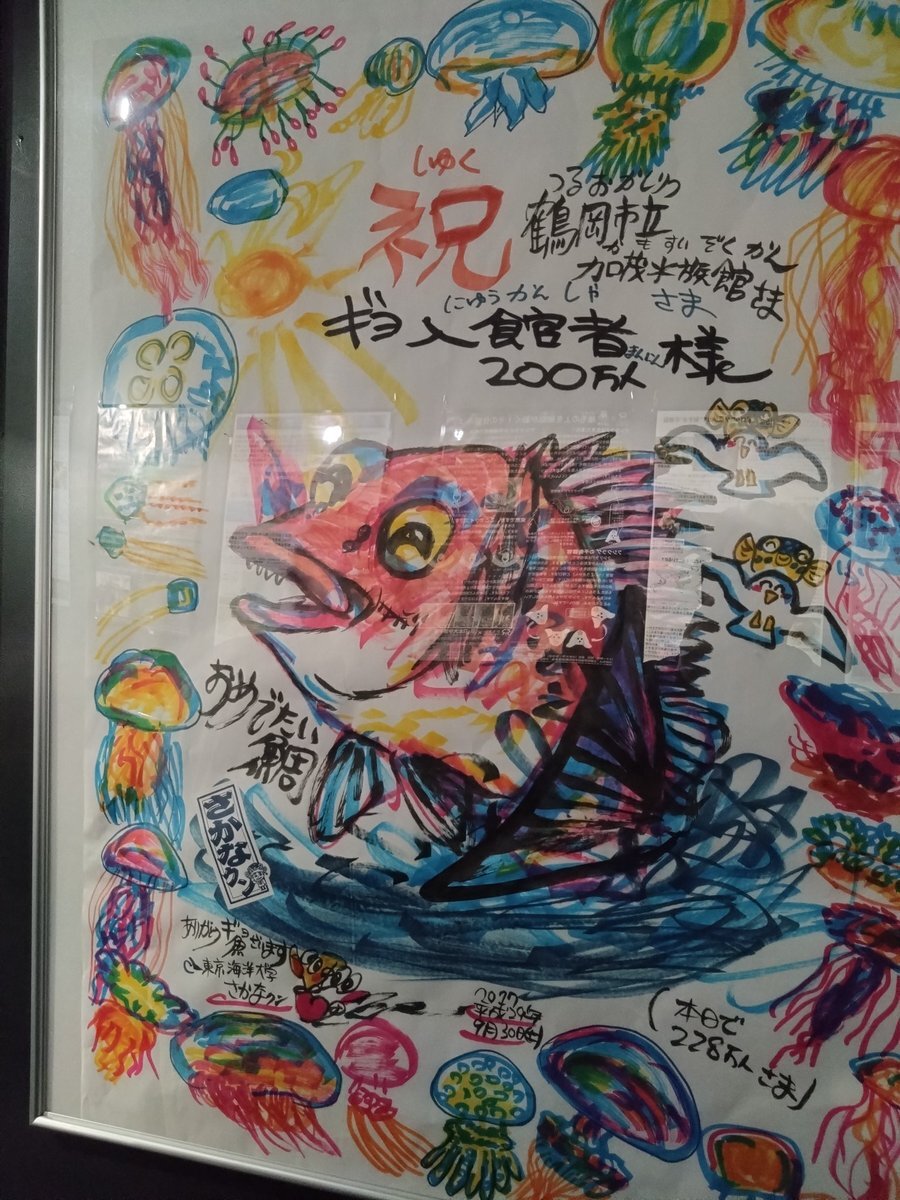 しゅく
祝
つるおかしりつ
鶴岡市立
かもすいぞくかん
加茂水族館さま
にゅうかんしゃ さま
ギョ入館者 様
200万人
まんにん
おめでたい
鯛
さかなクン
ありがとギョ魚ざいます
東京海洋大学
さかなクン
9月30日(土)
(本日で
228万人さま)